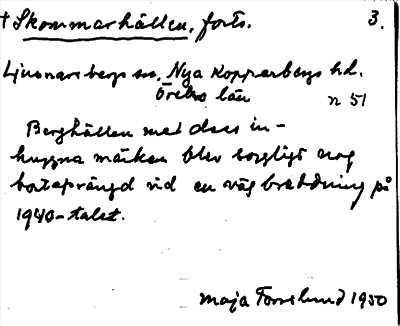 † Skommarhällen, forts. 3.
Ljusnarsbergs sn, Nya Kopparbergs hd.
Örebro län n 51
Berghällen med dess in-
huggna märken blev sorgligt nog
bortsprängd vid en vägbreddning på
1940-talet.
Maja Forslund 1950